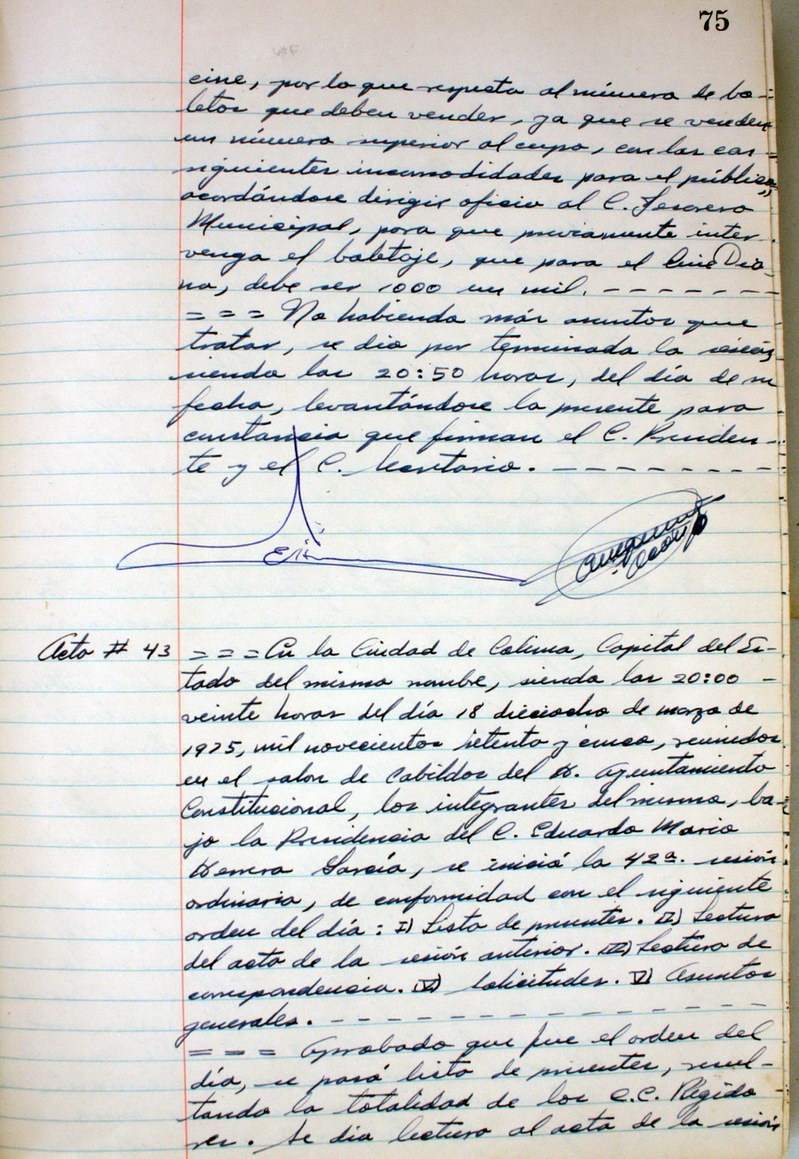 75
cine, por lo que respecta al número de bo-
letos que deben vender, ya que se venden
un número superior al cupo, con las con
siguientes incomodidades para el público,
acordándose dirigir oficio al C. Tesorero
Municipal, para que previamente inter-
venga el boletaje, que para el Cine Dia-
na, debe ser 1000 un mil. - - - - - - -
= = = No habiendo más asuntos que
tratar, se dio por terminada la sesión
siendo las 20:50 horas, del día de su
fecha, levantándose la presente para
constancia que firman el C. Presiden-
te y el C. Secretario. - - - - - - - - -
Acta # 43 = = = En la Ciudad de Colima, Capital del Es-
tado del mismo nombre, siendo las 20:00 -
veinte horas del día 18 dieciocho de marzo de
1975, mil novecientos setenta y cinco, reunidos
en el salón de Cabildos del H. Ayuntamiento
Constitucional, los integrantes del mismo, ba-
jo la Presidencia del C. Eduardo Mario
Herrera García, se inició la 42a. sesión
ordinaria, de conformidad con el siguiente
orden del día: I) Lista de presentes. II) Lectura
del acta de la sesión anterior. III) Lectura de
correspondencia. IV) Solicitudes. V) Asuntos
generales. - - - - - - - - - - - - - - -
= = = Aprobado que fue el orden del
día, se pasó lista de presentes, resul-
tando la totalidad de los C.C. Regido
res. Se dio lectura al acta de la sesión